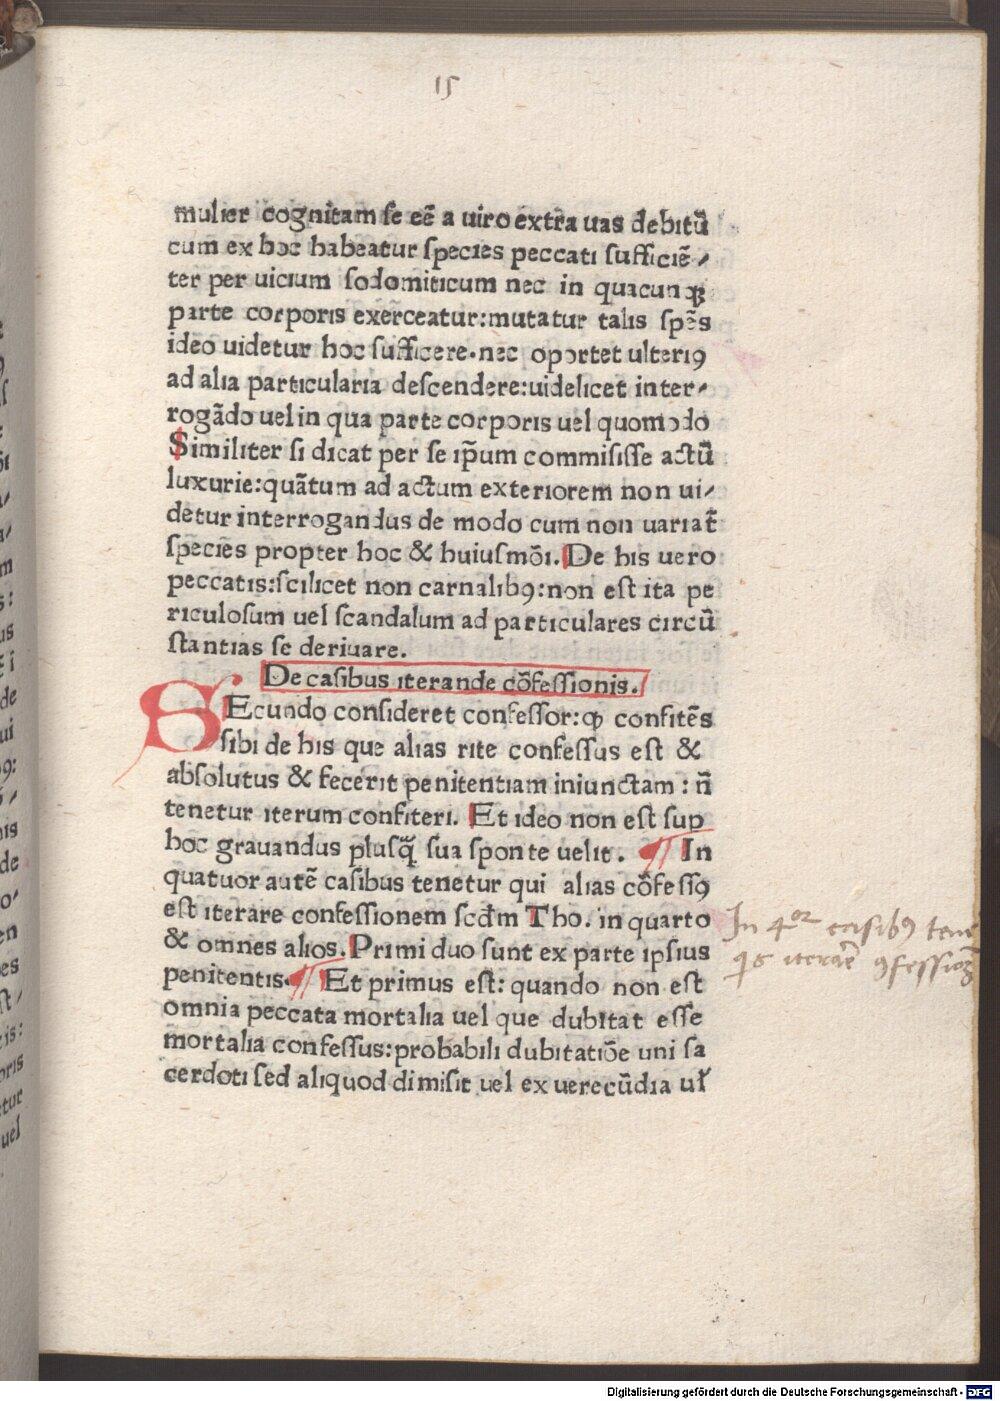 15
mulier cognitam se eē a uiro extra uas debitū
cum ex hoc habeatur species peccati sufficiē-
ter per uicium sodomiticum nec in quacunqꝫ
parte corporis exerceatur:mutatur talis spēs
ideo uidetur hoc sufficere.nec oportet ulteriꝰ
ad alia particularia descendere:uidelicet inter-
rogādo uel in qua parte corporis uel quomodo
Similiter si dicat per se ip̄um commisisse actū
luxurie:quātum ad actum exteriorem non ui-
detur interrogandus de modo cum non uariat̄
species propter hoc & huiusmōi. De his uero
peccatis:scilicet non carnalibꝰ:non est ita pe
riculosum uel scandalum ad particulares circū
stantias se deriuare.
De casibus iterande cōfessionis.
SEcundo consideret confessor:ꝙ confitēs
sibi de his que alias rite confessus est &
absolutus & fecerit penitentiam iniunctam : n̄
tenetur iterum confiteri. Et ideo non est sup
hoc grauandus plusq̄ sua sponte uelit. ¶ In
quatuor autē casibus tenetur qui alias cōfessꝰ
est iterare confessionem scd̄m Tho. in quarto
& omnes alios. Primi duo sunt ex parte ipsius
penitentis ¶ Et primus est: quando non est
omnia peccata mortalia uel que dubitat esse
mortalia confessus:probabili dubitatiōe uni sa
cerdoti sed aliquod dimisit uel ex uerecūdia uł
In 4or casibꝰ tene
iterare ꝯfessionē
Digitalisierung gefördert durch die Deutsche Forschungsgemeinschaft - DFG